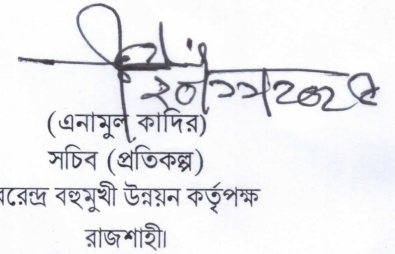 ২০/১১/২০২৫
(এনামুল কাদির)
সচিব (প্রতিকল্প)
বরেন্দ্র বহুমুখী উন্নয়ন কর্তৃপক্ষ
রাজশাহী।